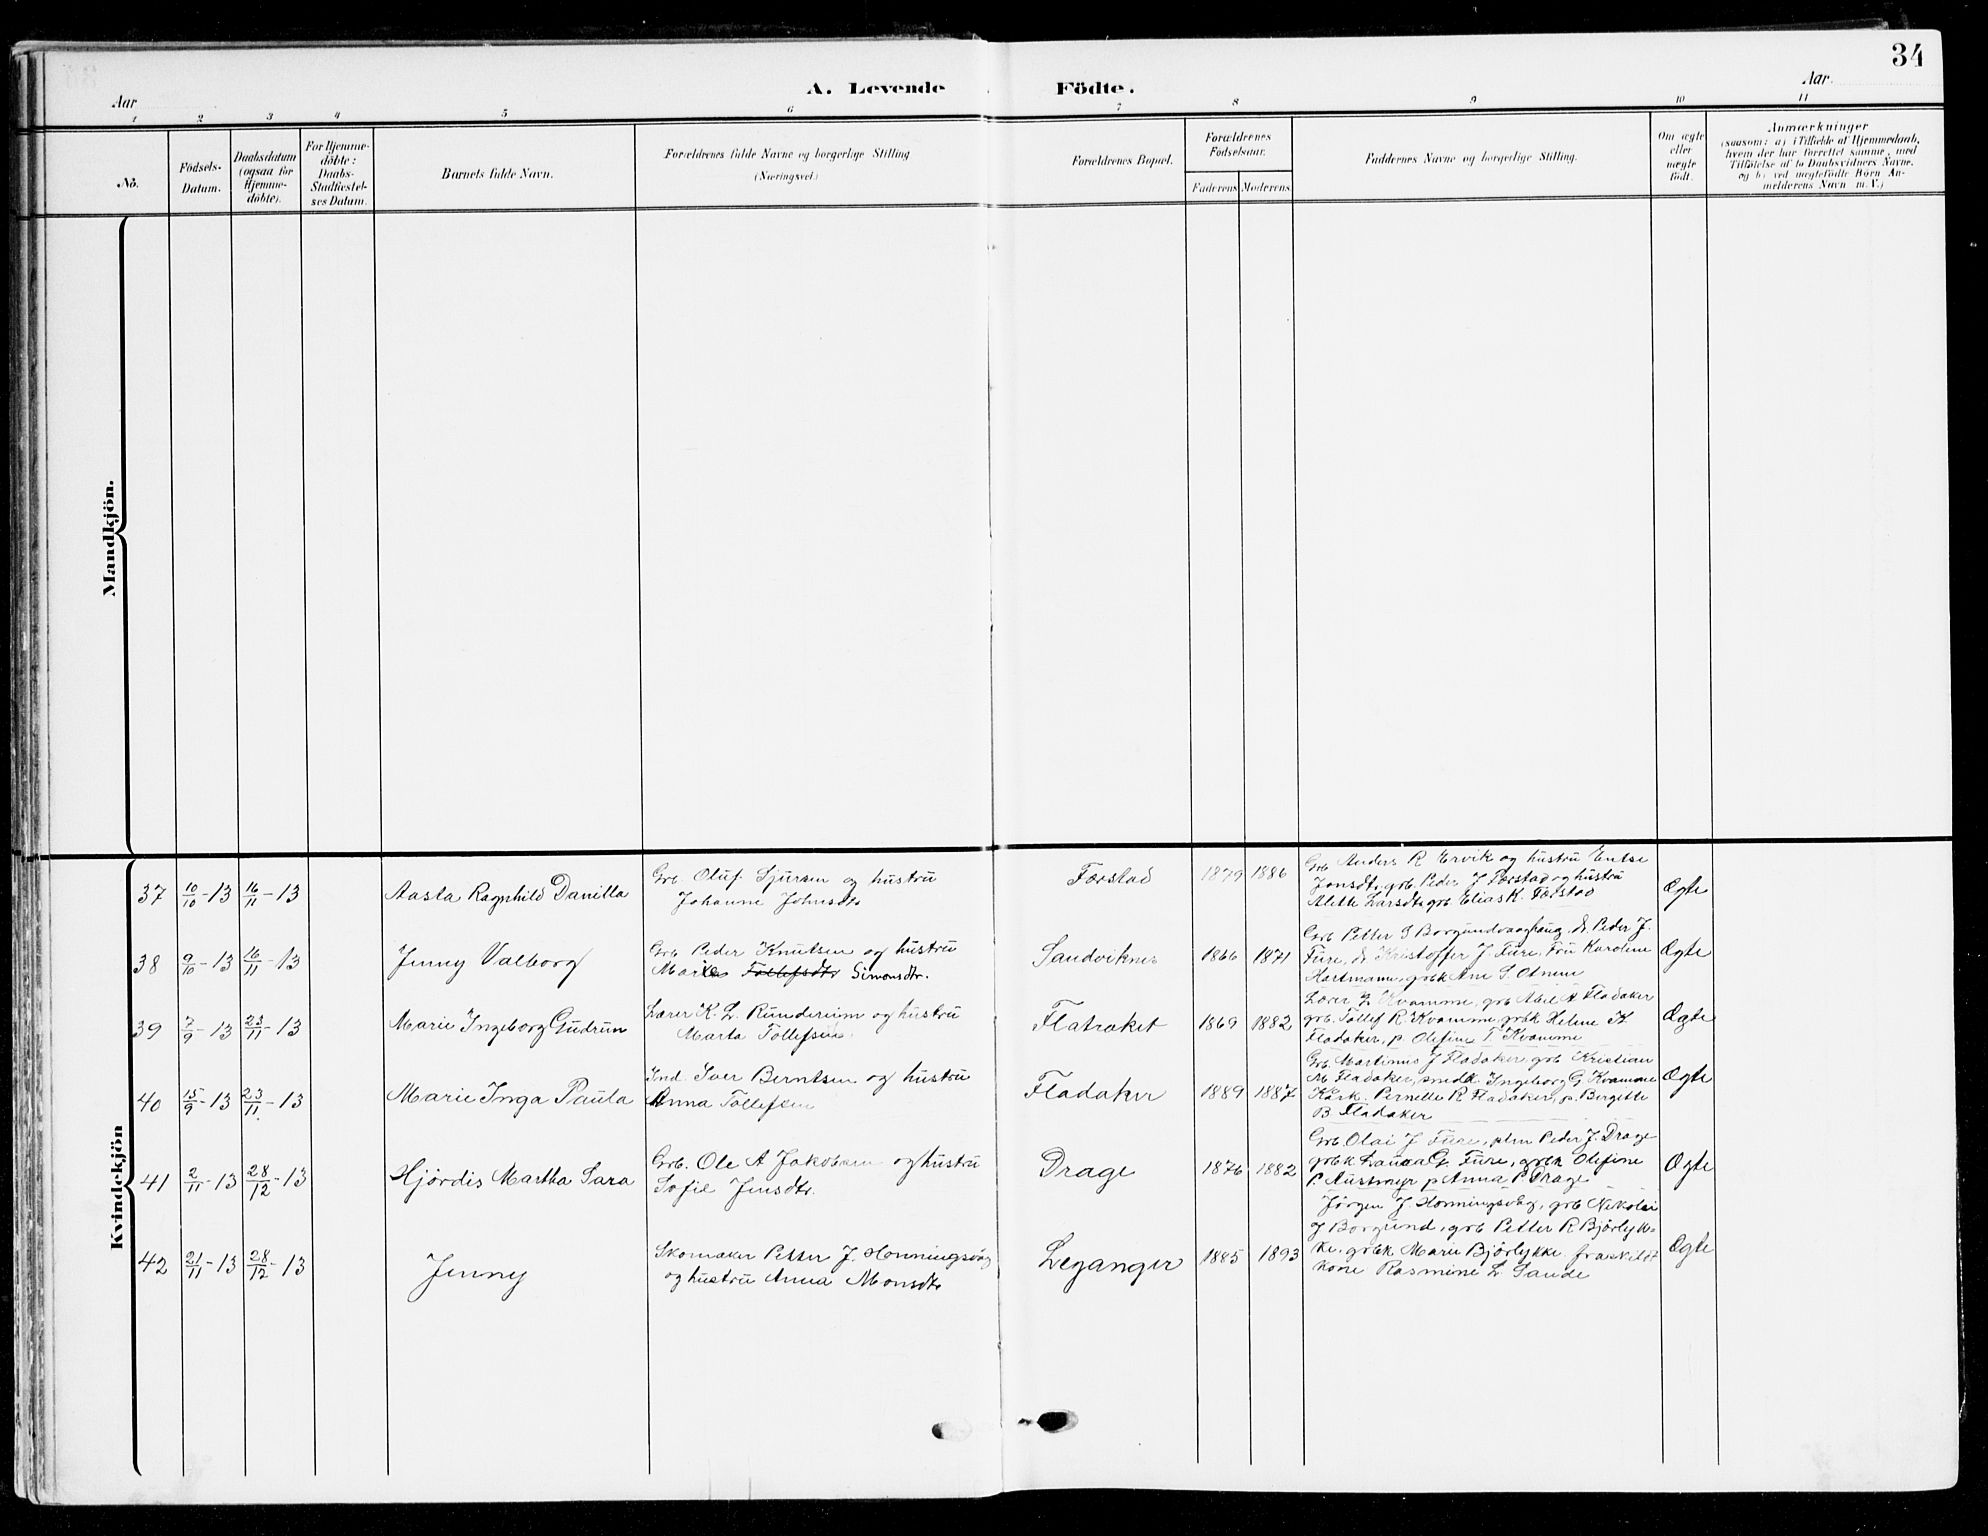 34
Aar
A. Levende Födte.
Aar
1 2 3 4 5 6 7 8 9 10 11
No.
Födsels-
Datum.
Daabsdatum
(ogsaa for
Hjemme-
döbte).
For Hjemme-
döbte:
Daabs-
Stadfæstel-
ses Datum.
Barnets fulde Navn.
Forældrenes fulde Navne og borgerlige Stilling
(Næringsvei.)
Forældrenes Bopæl.
Forældrenes
Födselsaar.
Faderens Moderens
Faddernes Navne og borgerlige Stilling.
Om ægte
eller
uægte
födt.
Anmærkninger
(saasom: a) i Tilfælde af Hjemmedaab,
hvem der har forrettet samme, med
Tilföielse af to Daabsvidners Navne,
og b) ved uægtefödte Börn An-
melderens Navn m. V.)
Mandkjön.
Kvindekjön
37 10/10-13 16/11-13
Aasta Ragnhild Danilla
Grb. Oluf Sjursen og hustru
Johanne Johnsdtr
Færstad
1879 1886
Grb Anders R Ervik og hustru Entse
Jonsdtr, grb. Peder J Færstad og hustru
Alette Larsdtr grb Elias K. Færstad
Ægte
38 9/10-13 16/11-13
Jenny Valborg
Grb Peder Knutsen og hustru
Marie Tollefsdtr Simonsdtr.
Sandviknes
1866 1871
Grb Petter S Borgundvaaghaug, d. Peder J.
Fure, d. Kristoffer J. Fure, Fru Karoline
Hartmann, grbk Ane S. Otnem
Ægte
39 7/9-13 23/11-13
Marie Ingeborg Gudrun
Lærer K. L. Rundereim og hustru
Marta Tollefsen
Flatraket
1869 1882
Lærer Kvamme, grb Abel A Fladaker
grb. Tollef R. Kvamme, grbk Helene K
Fladaker, p. Olefine T. Kvamme
Ægte
40 15/9-13 23/11-13
Marie Inga Paula
Ind. Iver Berntsen og hustru
Anna Tollefsen
Fladaker
1889 1887
Grb. Martinus J Fladaker, grb Kristian
M Fladaker, Ingeborg G Kvamme
Pernille R Fladaker, p. Bergitte
B. Fladaker
Ægte
41 2/11-13 28/12-13
Hjørdis Martha Sara
Grb. Ole A Jakobsen og hustru
Sofie Jensdtr.
Drage
1876 1882
Grb. Olai J Fure, Peder J. Drage
grbk Laura G. Fure, grbk Olefine
P. Austmyr p Anna P. Drage
Ægte
42 21/11-13 28/12-13
Jenny
Skomaker Petter J. Honningsvåg
og hustru Anna Monsdtr
Leganger
1885 1893
Jørgen J. Honningsvåg, grb Nikolai
J Borgund, grb Petter R Bjørlyk-
ke, grbk Marie Bjørlykke. fraskilt
kone Rasmine L. Sande
Ægte